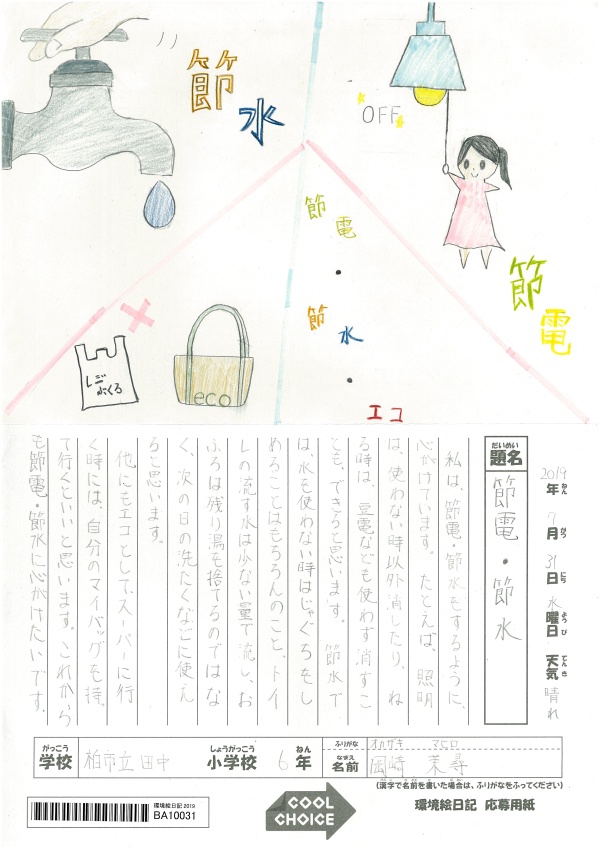 節水
OFF
節電
レジぶくろ
eco
節電
・
節水
・
エコ
2019年 ねん 7月 がつ 31日 にち 水曜日 ようび 天気 てんき 晴れ
だいめい
題名
節電・節水
私は、節電・節水をするように、
心がけています。たとえば、照明
は、使わない時以外消したり、ね
る時は、豆電なども使わず消すこ
とも、できると思います。節水で
は、水を使わない時はじゃぐちをし
めることはもちろんのこと、トイ
レの流す水は少ない量で流し、お
ふろは残り湯を捨てるのではな
く、次の日の洗たくなどに使え
ると思います。
他にもエコとして、スーパーに行
く時には、自分のマイバッグを持
て行くといいと思います。これから
も節電・節水に心がけたいです。
がっこう しょうがっこう ねん
学校 柏市立 田中 小学校 6年
ふりがな オカザキ マヒロ
なまえ
名前 岡崎 茉尋
(漢字で名前を書いた場合は、ふりがなをふってください)
環境絵日記 2019
BA10031
COOL
CHOICE
環境絵日記 応募用紙